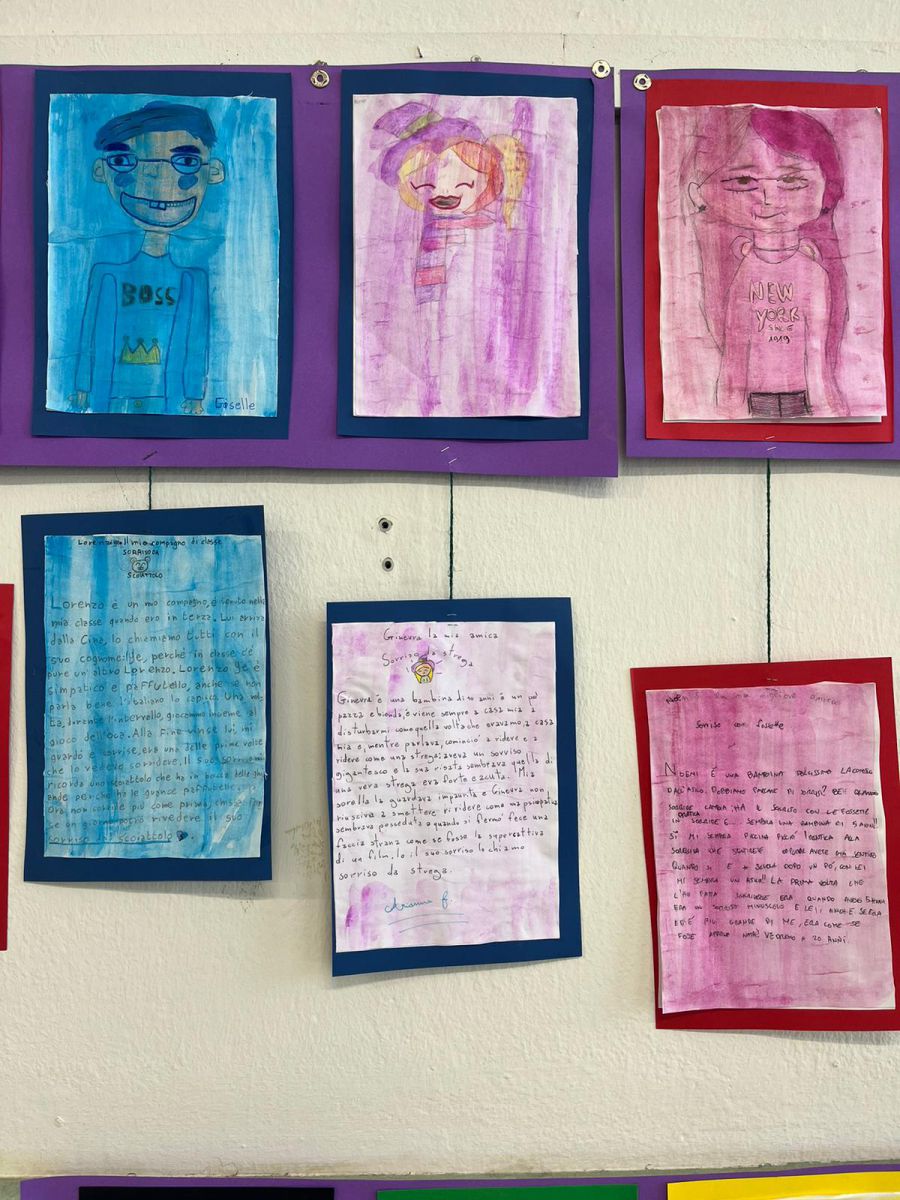 BOSS
Giselle
NEW
YORK
SINCE
1919
Lorenzo il mio compagno di classe
SORRISO DA
SCOIATTOLO
Lorenzo è un mio compagno, è venuto nella
mia classe quando ero in terza. Lui arriva
dalla Cina, lo chiamiamo tutti con il
suo cognome: Ye, perché in classe c'è
pure un altro Lorenzo. Lorenzo Ye è
simpatico e paffutello, anche se non
parla bene l'italiano lo capisco. Una vol-
ta, durante l'intervallo, giocammo insieme al
gioco dell'oca. Alla fine vinse lui, mi
guardò e sorrise, era una delle prime volte
che lo vedevo sorridere. Il suo sorriso mi
ricorda uno scoiattolo che ha in bocca delle ghi-
ande perché ha le guance paffute.
Ora non sorride più come prima, chissà
se un giorno potrò rivedere il suo
sorriso di scoiattolo
Ginevra la mia amica
Sorriso da strega
Ginevra è una bambina di 10 anni è un po'
pazza e bionda, e viene sempre a casa mia a
disturbarmi come quella volta che eravamo a casa
mia e, mentre parlava, cominciò a ridere e a
ridere come una strega; aveva un sorriso
gigantesco e la sua risata sembrava quella di
una vera strega era forte e acuta. Mia
sorella la guardava impaurita e Ginevra non
riusciva a smettere di ridere come una psicopatica
sembrava posseduta e quando si fermò fece una
faccia strana come se fosse la supercattiva
di un film, io il suo sorriso lo chiamo
sorriso da strega.
Arianna F.
mia migliore amica
Sorriso con fossette
NOEMI È UNA BAMBINA BELLISSIMA LA CONOSCO
DALL'ASILO. DOBBIAMO PARLARE DI SORRISI? BEH QUANDO
SORRIDE CAMBIA: HA IL SORRISO CON LE FOSSETTE
IN PRATICA SORRIDE E SEMBRA UNA BAMBINA DI 5 ANNI!!
SÌ MI SEMBRA PICCINA PICCIÒ IDENTICA ALLA
SORELLINA CHE
QUANDO A SCUOLA DOPO UN PO', CON LEI
MI SEMBRA UN ATTIMO!! LA PRIMA VOLTA CHE
L'HO FATTA SORRIDERE ERA QUANDO AVEVO 5 ANNI
ERA UN SORRISO MINUSCOLO E LEI ANCHE SE ERA
ED È PIÙ GRANDE DI ME, ERA COME SE
FOSSE APPENA NATA! VEDREMO A 20 ANNI.